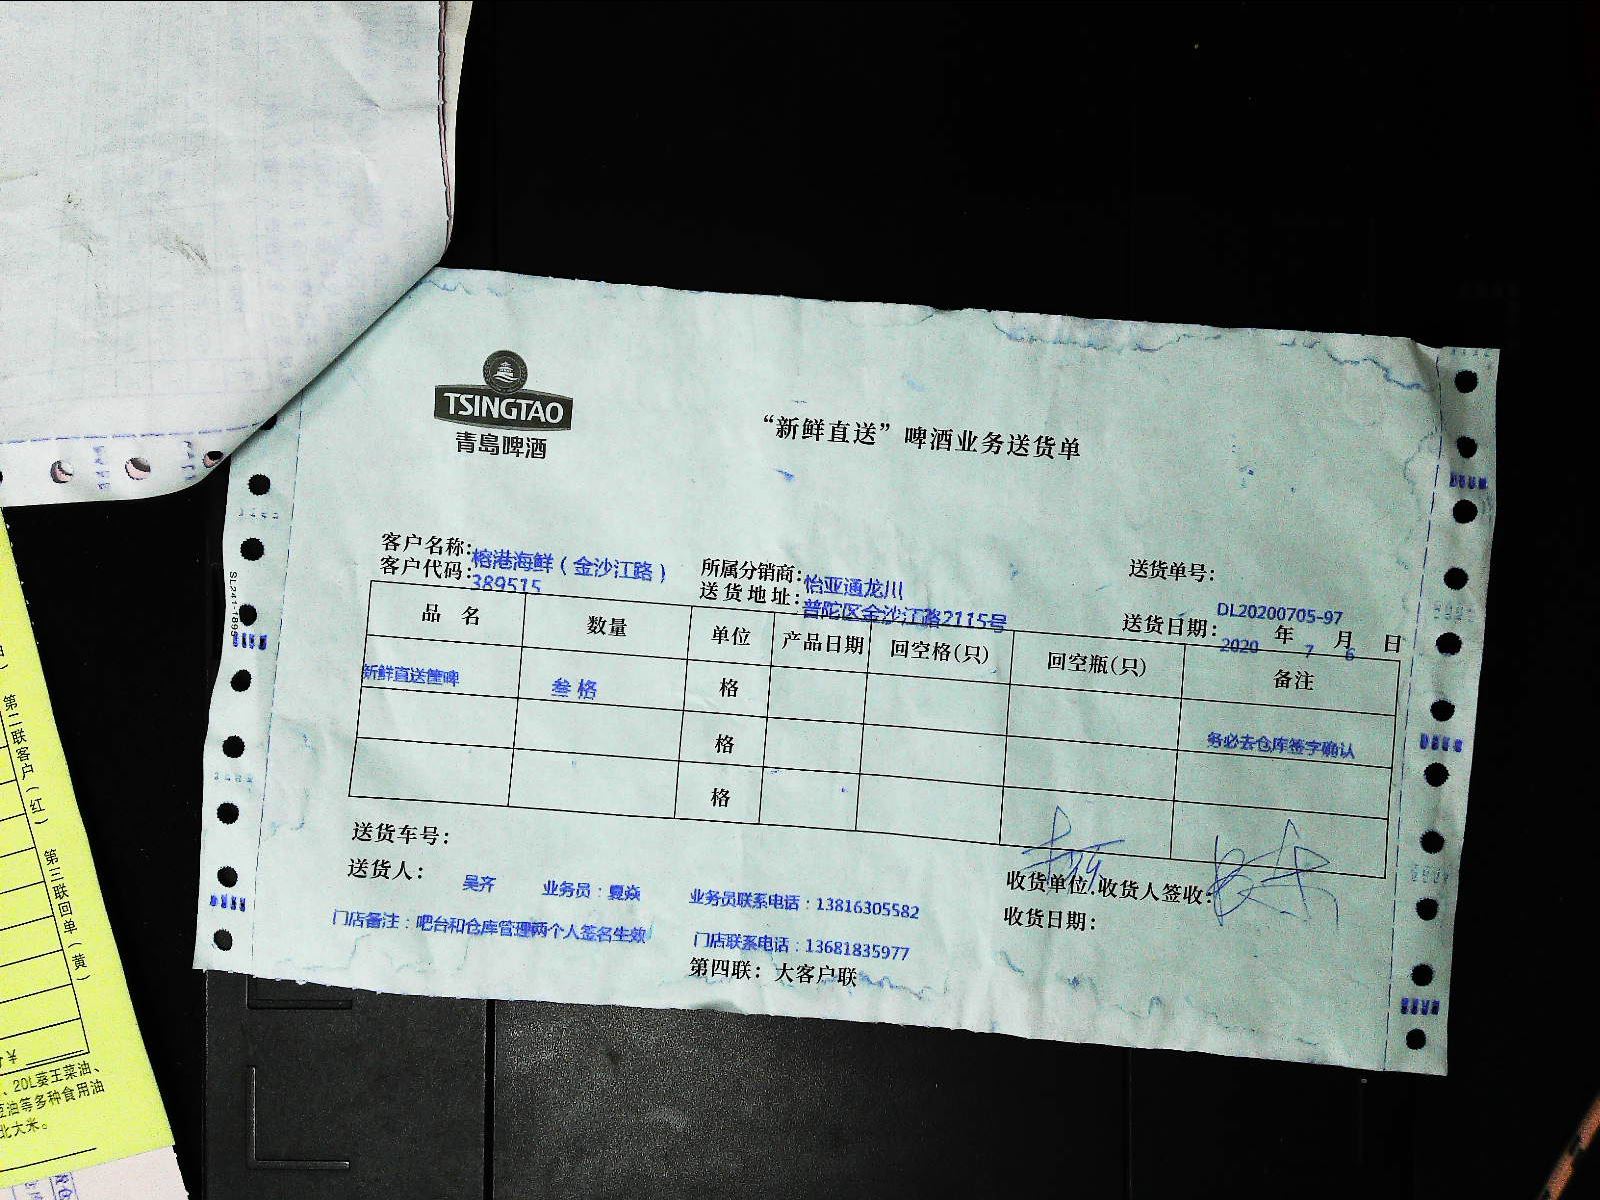 TSINGTAO
青島啤酒
“新鲜直送”啤酒业务送货单
客户名称：榕港海鲜（金沙江路） 所属分销商：怡亚通龙川 送货单号：DL20200705-97
客户代码：389515 送货地址：普陀区金沙江路2115号 送货日期：2020 年 7 月 6 日
品 名 数量 单位 产品日期 回空格(只) 回空瓶(只) 备注
新鲜直送筐啤 叁格 格 务必去仓库签字确认
格
格
送货车号：
送货人：吴齐 业务员：夏焱 业务员联系电话：13816305582 收货单位.收货人签收：
门店备注：吧台和仓库管理两个人签名生效 门店联系电话：13681835977 收货日期：
第四联：大客户联
SL241-1895
第二联客户（红） 第三联回单（黄）
¥
、20L葵王菜油、
豆油等多种食用油
北大米。